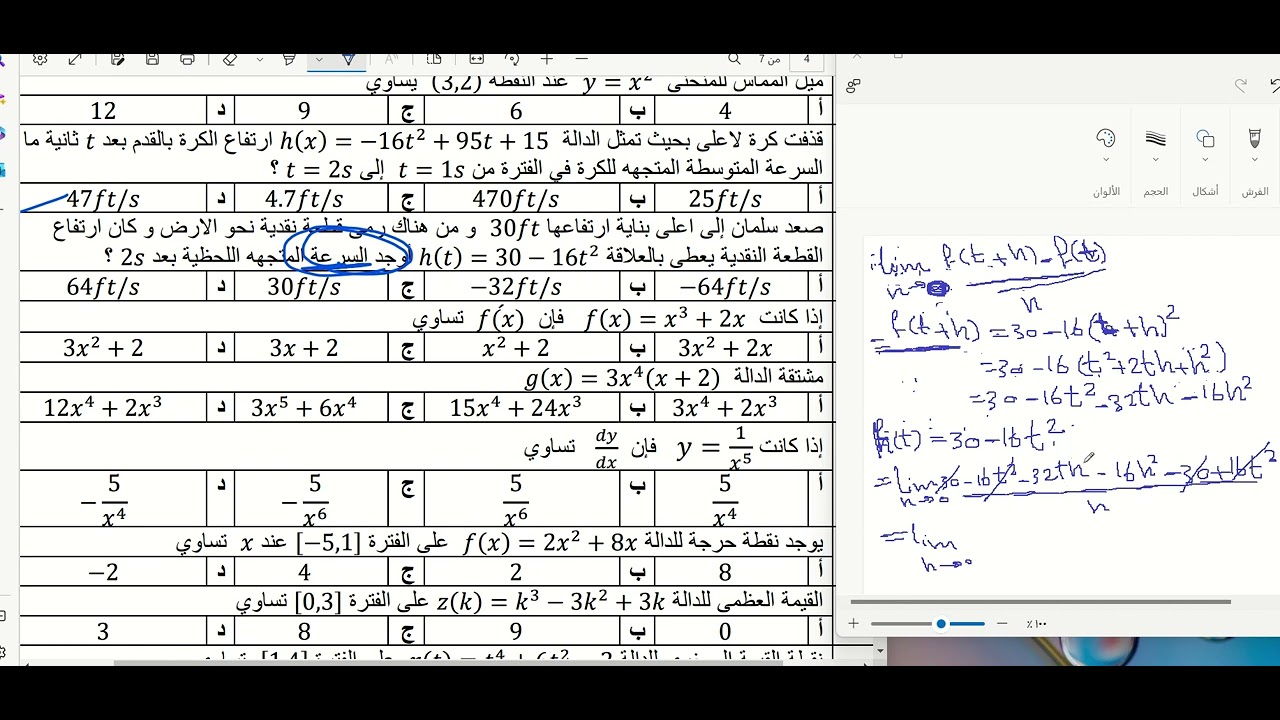 4 من 7
ميل المماس للمنحنى y = x² عند النقطة (3,2) يساوي
أ 4 ب 6 ج 9 د 12
قذفت كرة لاعلى بحيث تمثل الدالة h(x) = −16t² + 95t + 15 ارتفاع الكرة بالقدم بعد t ثانية ما
السرعة المتوسطة المتجهه للكرة في الفترة من t = 1s إلى t = 2s ؟
أ 25ft/s ب 470ft/s ج 4.7ft/s د 47ft/s
صعد سلمان إلى اعلى بناية ارتفاعها 30ft و من هناك رمى قطعة نقدية نحو الارض و كان ارتفاع
القطعة النقدية يعطى بالعلاقة h(t) = 30 − 16t² أوجد السرعة المتجهه اللحظية بعد 2s ؟
أ −64ft/s ب −32ft/s ج 30ft/s د 64ft/s
إذا كانت f(x) = x³ + 2x فإن f́(x) تساوي
أ 3x² + 2x ب x² + 2 ج 3x + 2 د 3x² + 2
مشتقة الدالة g(x) = 3x⁴(x + 2)
أ 3x⁴ + 2x³ ب 15x⁴ + 24x³ ج 3x⁵ + 6x⁴ د 12x⁴ + 2x³
إذا كانت y = 1/x⁵ فإن dy/dx تساوي
أ 5/x⁴ ب 5/x⁶ ج −5/x⁶ د −5/x⁴
يوجد نقطة حرجة للدالة f(x) = 2x² + 8x على الفترة [−5,1] عند x تساوي
أ 8 ب 2 ج 4 د −2
القيمة العظمى للدالة z(k) = k³ − 3k² + 3k على الفترة [0,3] تساوي
أ 0 ب 9 ج 8 د 3
الفرش أشكال الحجم الألوان
lim f(t+h) − f(t)
h→0 h
f(t+h) = 30 − 16(t+h)²
= 30 − 16(t² + 2th + h²)
= 30 − 16t² − 32th − 16h²
f(t) = 30 − 16t²
= lim 30 − 16t² − 32th − 16h² − 30 + 16t²
h→0 h
= lim
h→0
٪١٠٠